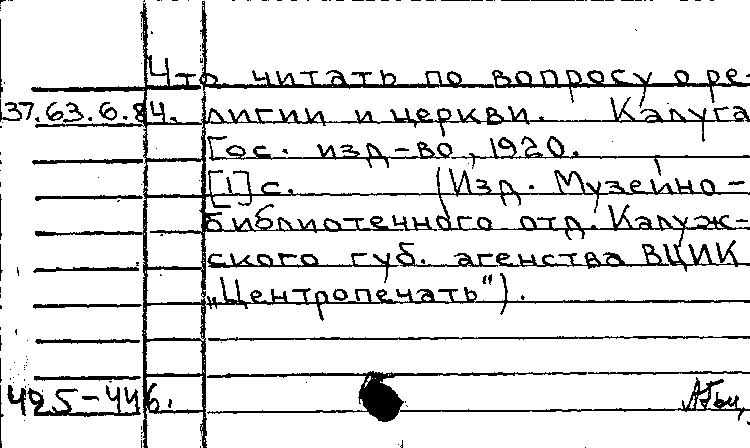 Что читать по вопросу о ре-
37.63.6.84. лигии и церкви. Калуга
Гос. изд-во, 1920.
[1] с. (Изд. Музейно-
библиотечного отд. Калуж-
ского губ. агенства ВЦИК
„Центропечать").
425-446.